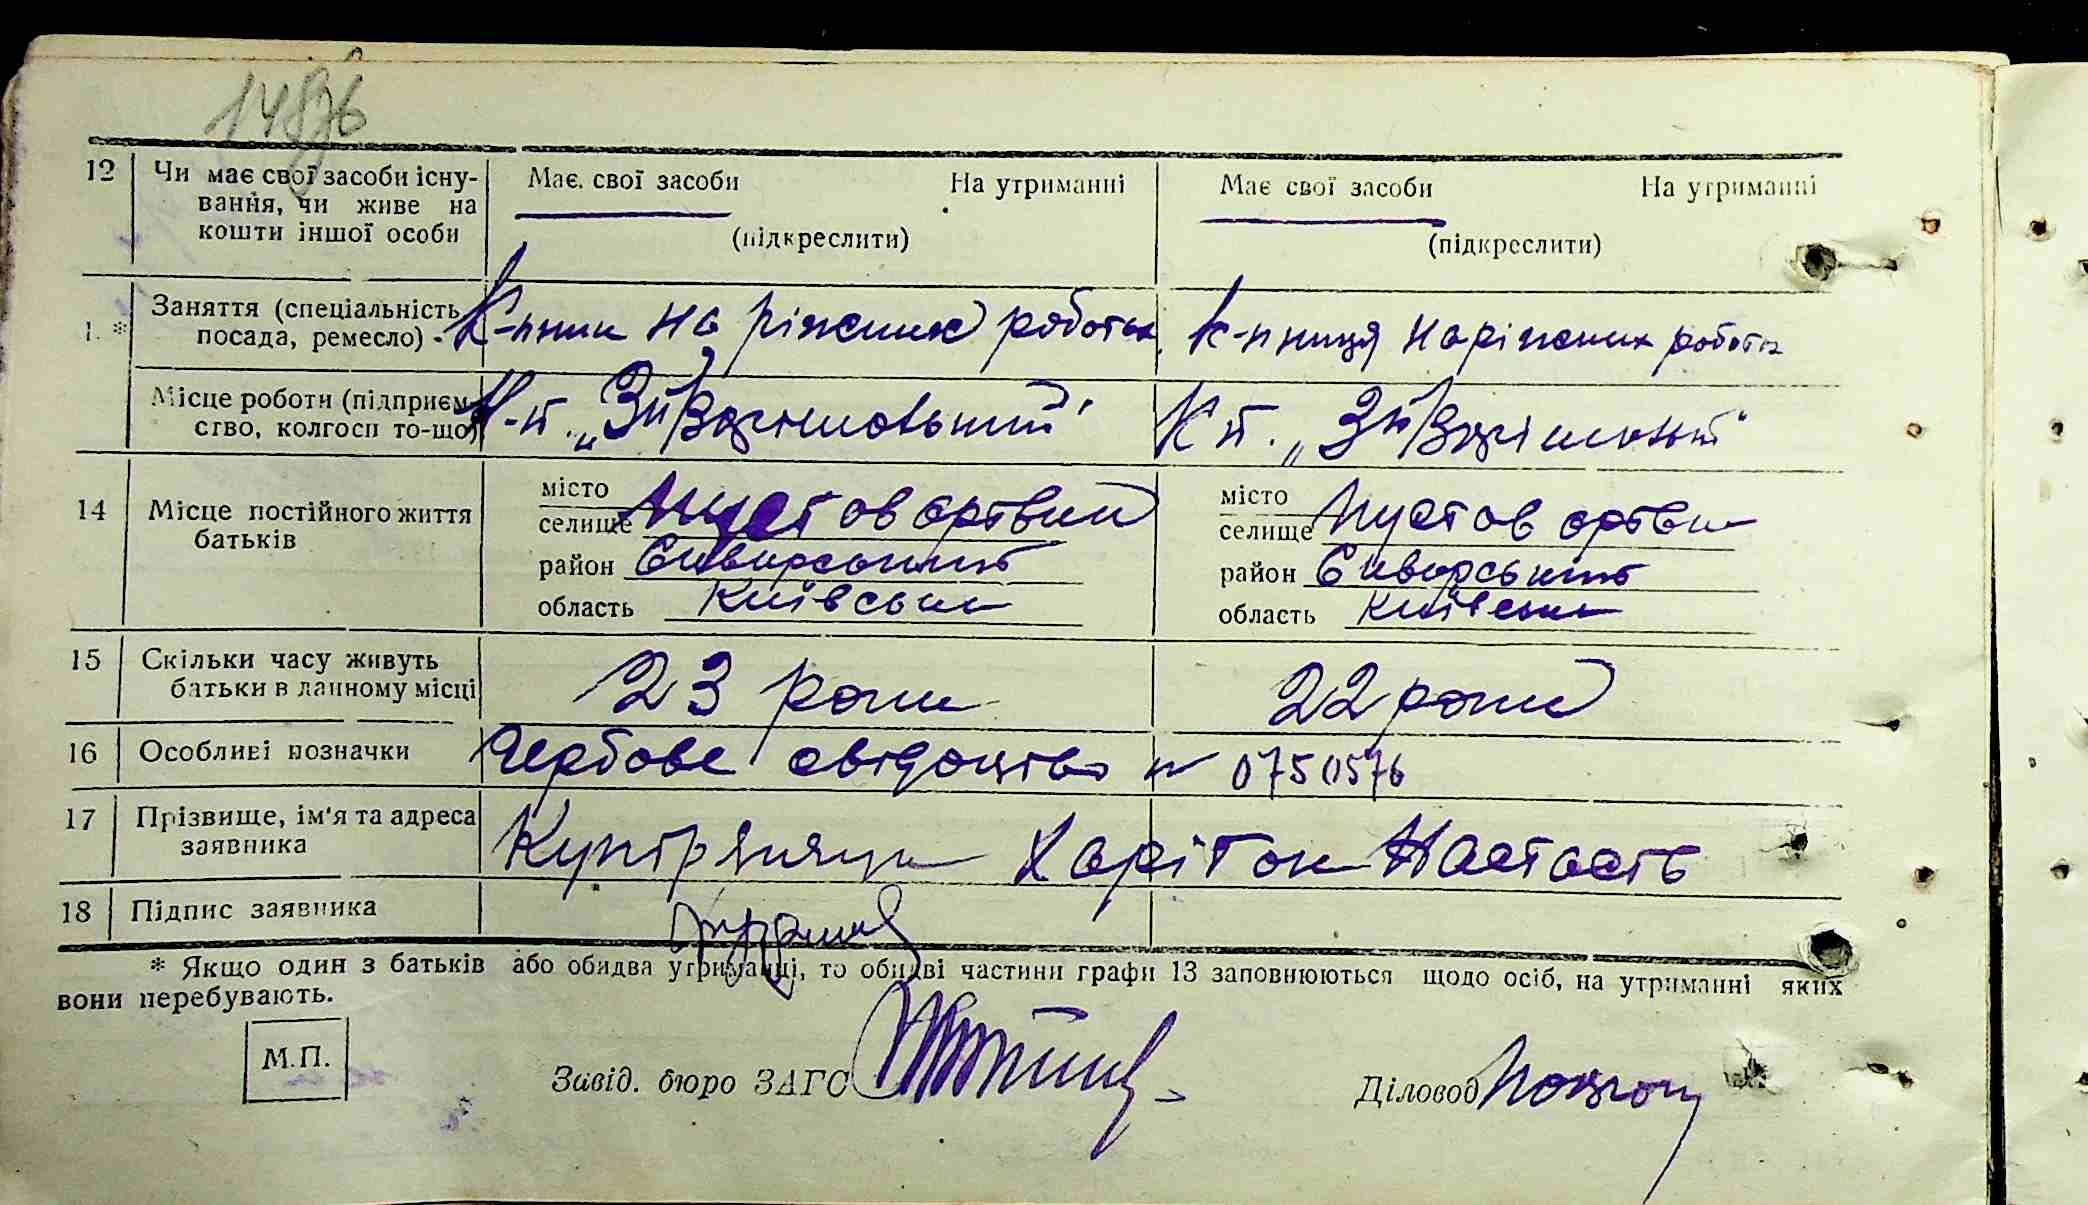 1486
12 Чи має свої засоби існу- Має. свої засоби На утриманні Має свої засоби На утриманні
вання, чи живе на
кошти іншої особи (підкреслити) (підкреслити)
1. * Заняття (спеціальність К-пник на ріжних роботах К-пниця на ріжних роботах
посада, ремесло)
Місце роботи (підприєм- К-п. К п.
ство, колгосп то-що)
14 Місце постійного життя місто місто
батьків селище Пустоварівки селище Пустоварівки
район Сквирський район Сквирський
область Київська область Київська
15 Скільки часу живуть 23 роки 22 роки
батьки в данному місці
16 Особливі позначки Гербове свідоцтво № 0750576
17 Прізвище, ім'я та адреса Харітон Настасія
заявника
18 Підпис заявника
* Якщо один з батьків або обидва утриманці, то обидві частини графи 13 заповнюються щодо осіб, на утриманні яких
вони перебувають.
М.П.
Завід. бюро ЗАГС Діловод